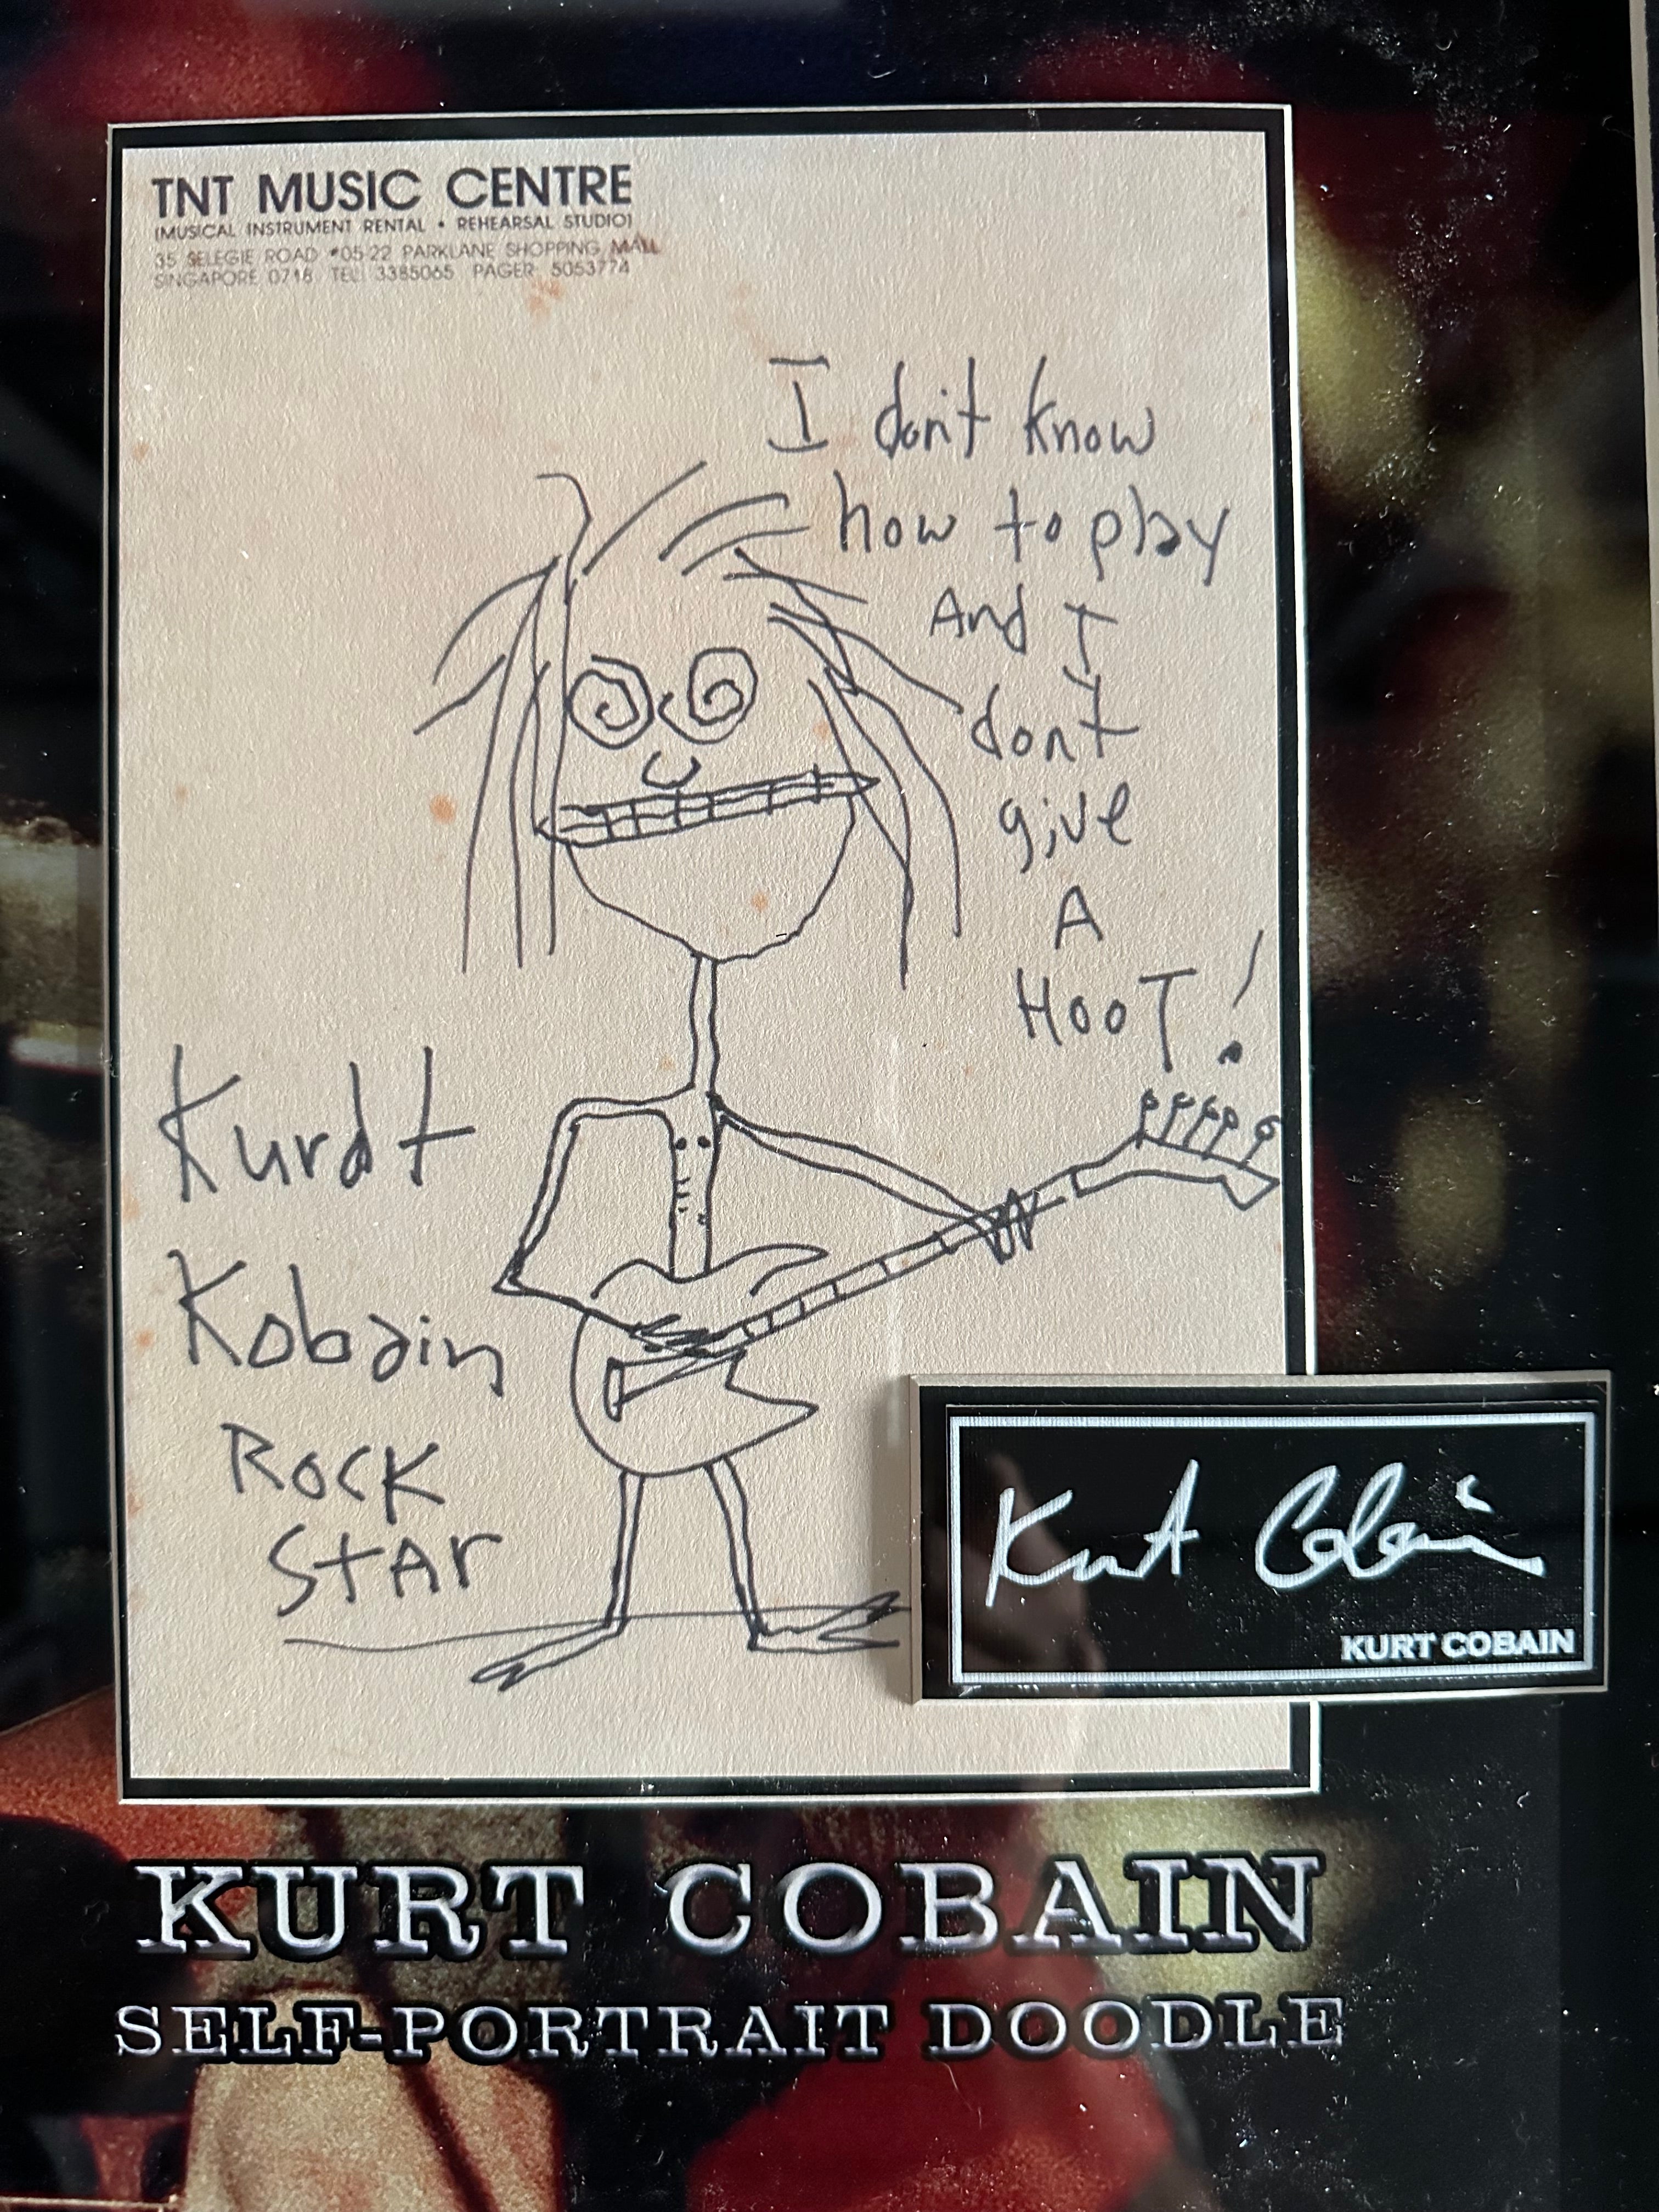 TNT MUSIC CENTRE
(MUSICAL INSTRUMENT RENTAL • REHEARSAL STUDIO)
35 SELEGIE ROAD #05-22 PARKLANE SHOPPING MALL
SINGAPORE 0718 TEL: 3385065 PAGER: 5053774
I don't know
how to play
And I
don't
give
A
HOOT!
Kurdt
Kobain
ROCK
STAr
Kurt Cobain
KURT COBAIN
KURT COBAIN
SELF-PORTRAIT DOODLE